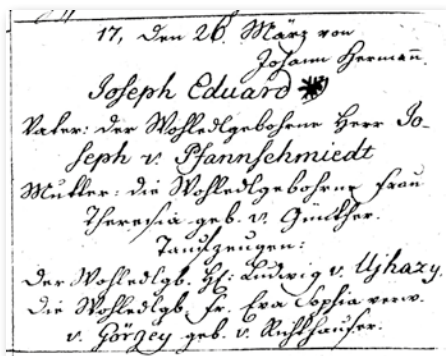 17, Den 26. März von
Johann Hermann.
Joseph Eduard
Vater: Der Wohledlgebohrne Herr Jo-
seph v. Pfannschmiedt
Mutter: die Wohledlgebohrne Frau
Theresia geb. v. Günther.
Taufzeugen:
Der Wohledlgb. H: Ludwig v. Ujhazy.
Die Wohledlgb. Fr. Eva Sophia verw.
v. Görgey geb. v.